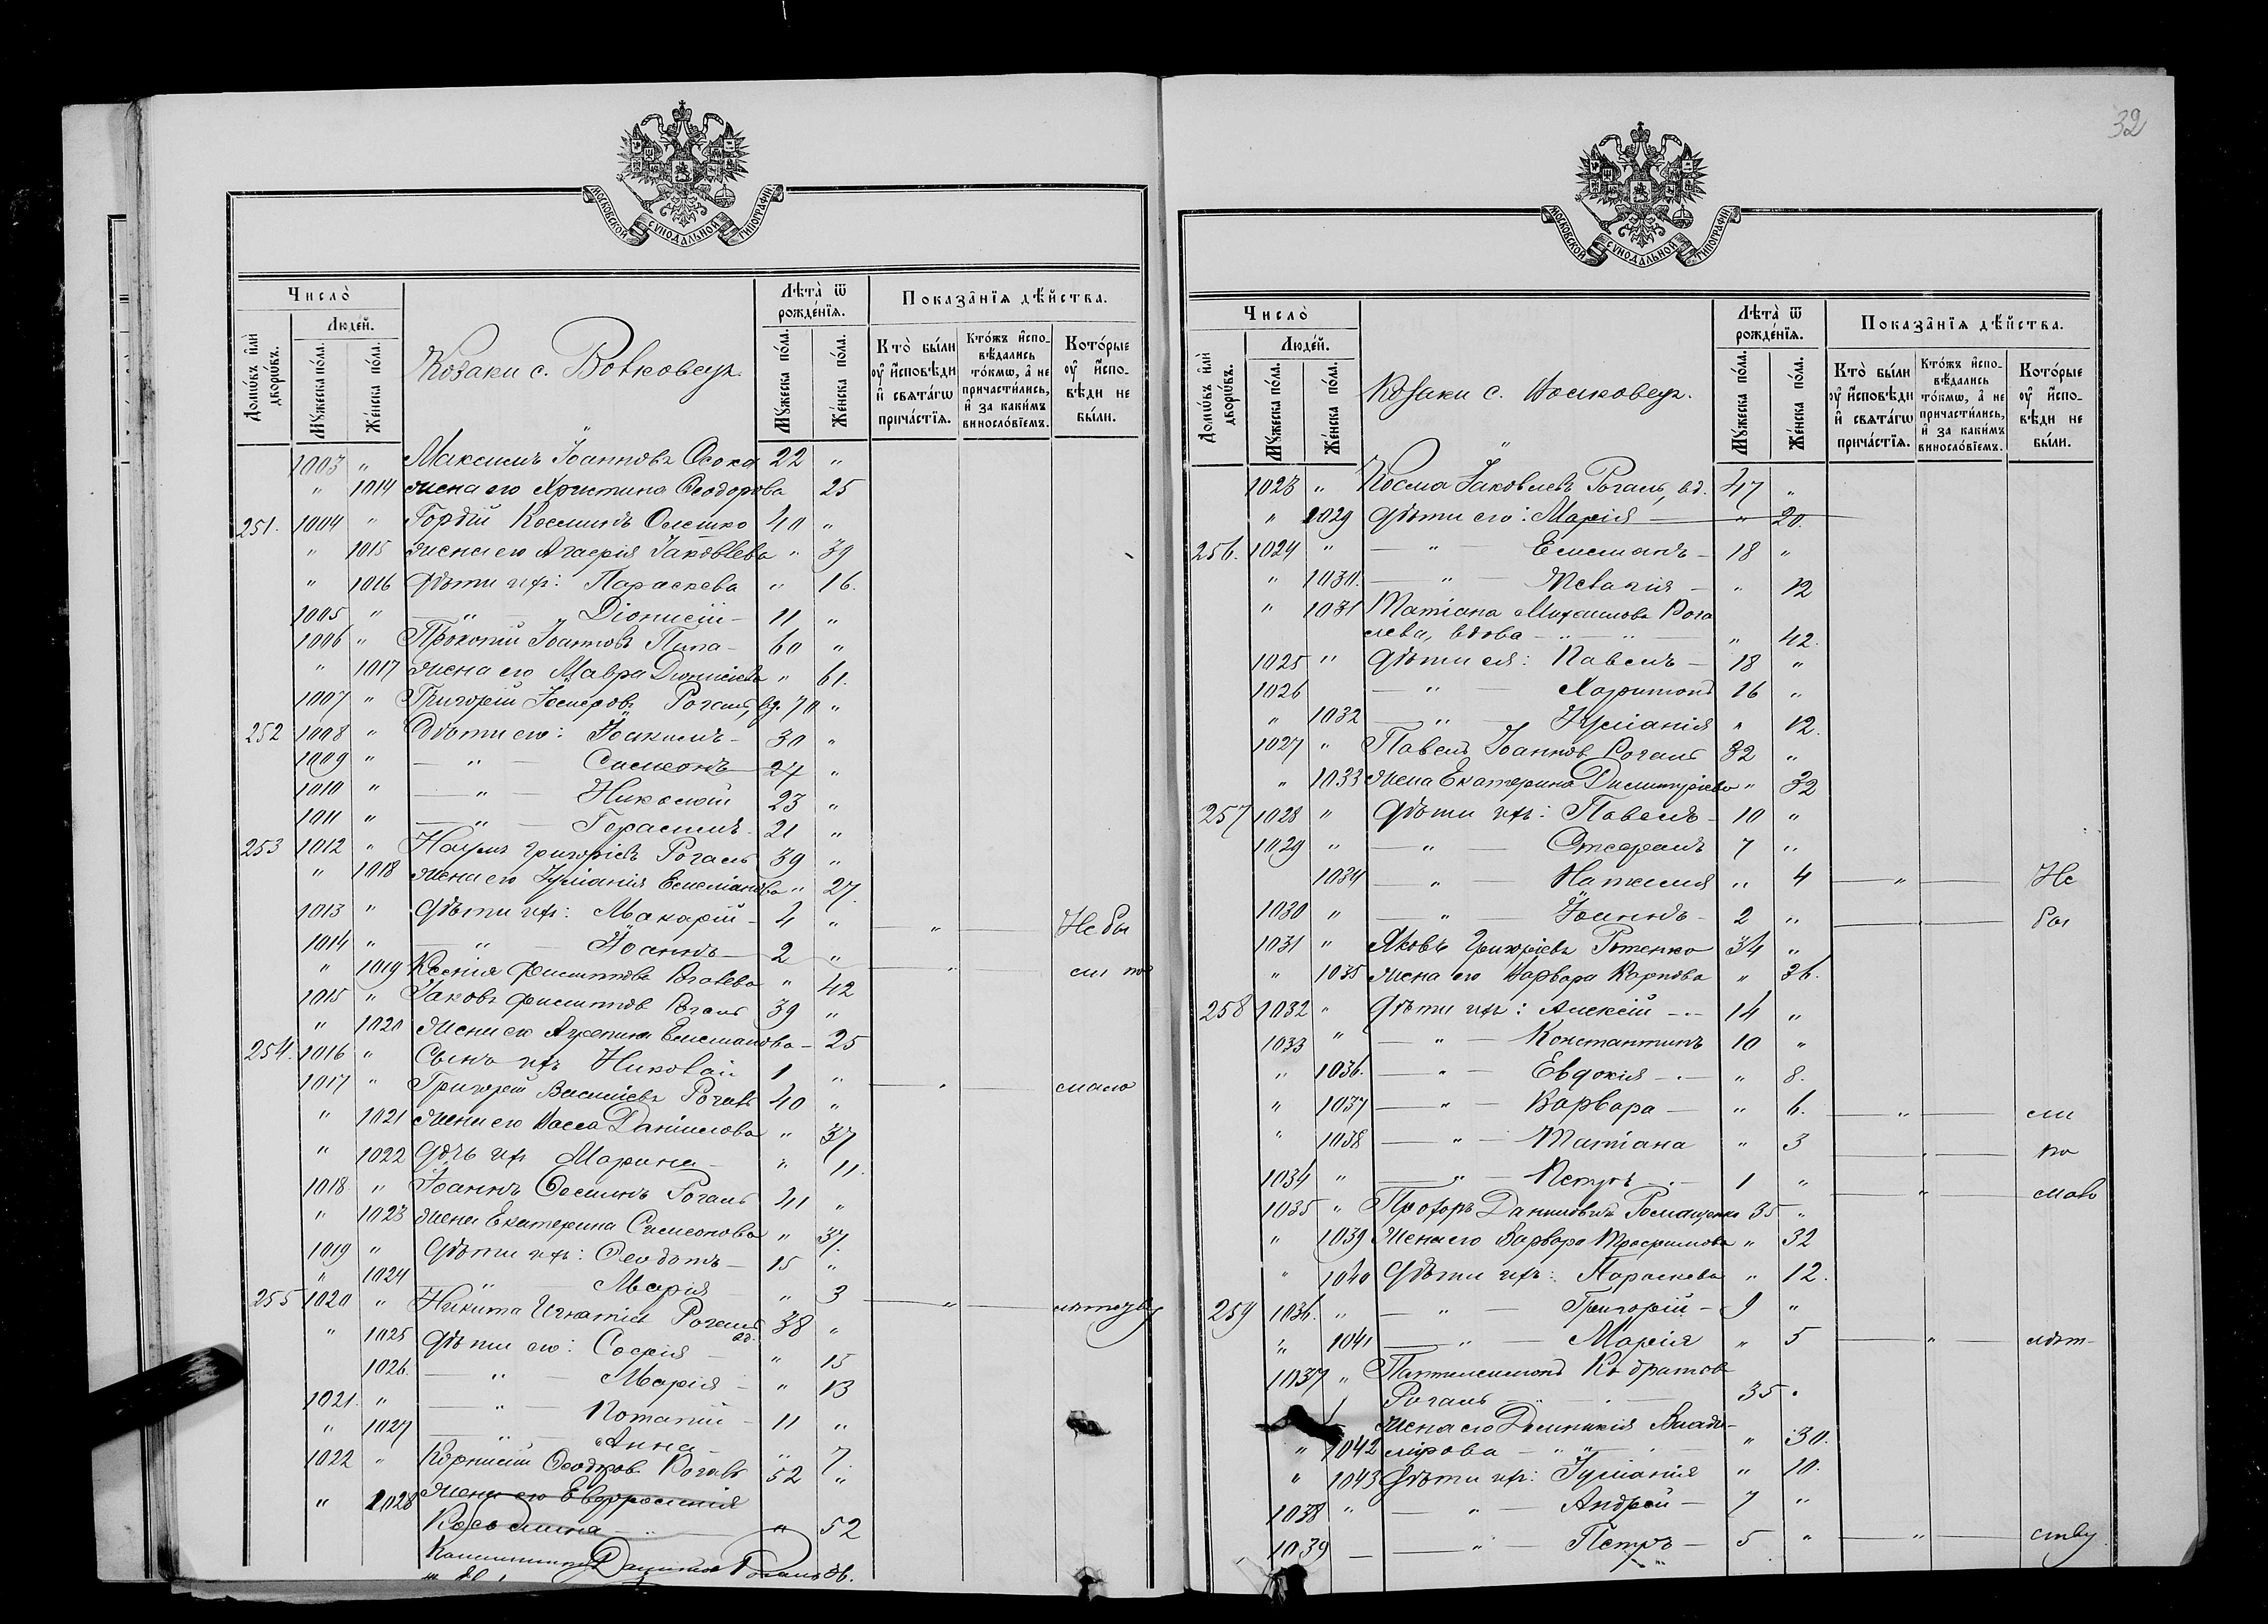 МОСКОВСКОЙ СУНОДАЛЬНОЙ ТИПОГРАФІИ
Число̀
Лѣта̀ ѿ рожде́нїѧ.
Показа̂нїѧ дѣ́йства.
Домѡ́въ и҆лѝ дворѡ́въ.
Люде́й.
Мꙋ́жеска по́ла.
Же́нска по́ла.
Козаки с. Волковецъ.
Мꙋ́жеска по́ла.
Же́нска по́ла.
Кто̀ бы́ли ᲂу҆ и҆́сповѣди и҆ свѧта́гѡ прича́стїѧ.
Кто́жъ и҆спо-вѣ́дались то́кмѡ, а҆ не причасти́лись, и҆ за каки́мъ винословїемъ.
Кото́рые ᲂу҆ и҆́спо-вѣди не бы́ли.
1003 " Максимъ Іоанновъ Осока 22 "
" 1014 жена его Христина Ѳеодорова 25
251. 1004 " Гордій Косминъ Олешко 40 "
" 1015 жена его Агафія Іаковлева " 39
" 1016 Дѣти ихъ: Параскева " 16.
1005 " — " — Діонисій — 11 "
1006 " Прокопій Іоанновъ Пипа — 60 "
" 1017 жена его Мавра Діонисіева " 61.
1007 " Григорій Іосифовъ Рогаль, вд. 70 "
252 1008 " Дѣти его: Іоакимъ — 30 "
1009 " — " — Симеонъ — 27 "
1010 " — " — Николай 23 "
1011 " — " — Герасимъ 21 "
253 1012 " Наумъ Григоріевъ Рогаль 39 "
" 1018 жена его Іуліанія Емеліанова " 27.
1013 " Дѣти ихъ: Макарій — 4 " — " — Не бы
1014 " — " — Іоаннъ — 2 " — " — ли по
" 1019 Ксенія Филиппова Рогалева " 42
1015 " Іаковъ Филипповъ Рогаль 39 "
" 1020 жена его Агрепина Емеліанова — 25
254. 1016 " Сынъ ихъ Николай 1 " — " — мало
1017 " Григорій Василіевъ Рогаль 40 "
" 1021 жена его Васса Даніилова " 37
" 1022 Дочь ихъ Марина — " 11.
1018 " Іоаннъ Ѳоминъ Рогаль 41 "
" 1023 жена Екатерина Симеонова " 37.
1019 " Дѣти ихъ: Ѳеодотъ — 15 "
" 1024 — " — Марія — " 3 — " — лѣтству
255 1020 " Никита Игнатіевъ Рогаль вд. 38 "
" 1025 Дѣти его: Софія — " 15
1026. — " — Марія — " 13
1021. " — " — Потапій — 11 "
" 1027 — " — Анна — " 7.
1022 " Корнилій Ѳеодоровъ Рогаль 52 "
" 1028 жена его Евфросинія
Косьмина — " — " 52
Даніиловъ Рогаль
32
МОСКОВСКОЙ СУНОДАЛЬНОЙ ТИПОГРАФІИ
Число̀
Лѣта̀ ѿ рожде́нїѧ.
Показа̂нїѧ дѣ́йства.
Домѡ́въ и҆лѝ дворѡ́въ.
Люде́й.
Мꙋ́жеска по́ла.
Же́нска по́ла.
Козаки с. Волковец.
Мꙋ́жеска по́ла.
Же́нска по́ла.
Кто̀ бы́ли ᲂу҆ и҆́сповѣди и҆ свѧта́гѡ прича́стїѧ.
Кто́жъ и҆спо-вѣ́дались то́кмѡ, а҆ не причасти́лись, и҆ за каки́мъ винословїемъ.
Кото́рые ᲂу҆ и҆́спо-вѣди не бы́ли.
1023 " Косма Іаковлевъ Рогаль, вд. 47 "
" 1029 Дѣти его: Марія — " 20.
256. 1024 " — " — Емеліанъ — 18 "
" 1030. — " — Пелагія — " 12
" 1031 Татіана Михаилова Рога
лева, вдова — " — " — " 42.
1025 " Дѣти ея: Павелъ — 18 "
1026 — " — Харитонъ 16 "
" 1032 — " — Іуліанія " 12.
1027 " Павелъ Іоанновъ Рогаль 32 "
" 1033 жена Екатерина Димитріева " 32
257 1028 " Дѣти ихъ: Павелъ — 10 "
1029 " — " — Стефанъ 7 "
1034 — " — Наталія " 4 — " — Не
1030 " — " — Іоаннъ — 2 " — бы
1031 " Яковъ Григоріевъ Ротенко 34 "
" 1035 жена его Варвара Карпова " 36.
258 1032 " Дѣти ихъ: Алексій — 14 "
1033 " — " — Константинъ 10 "
" 1036. — " — Евдокія — " 8.
" 1037 — " — Варвара — " 6. — " — ли
" 1038 — " — Татіана " 3 — " — по
1034 " — " — Петръ — 1 " — " — мало
1035 " Прохоръ Даниловъ Ромащенко 35 "
" 1039 жена его Варвара Трофимова " 32
" 1040 Дѣти ихъ: Параскева " 12.
259 1036. " — " — Григорій — 9 "
" 1041 — " — Марія " 5 — " — лѣт-
1037 " Пантелеимонъ Кодратовъ
Рогаль — " — 35 "
жена его Домникія Влади-
" 1042 мірова — " — " 30.
" 1043 Дѣти ихъ: Іуліанія " 10.
1038 " — " — Андрей — 7 "
1039 — — " — Петръ — 5 " — " — ству